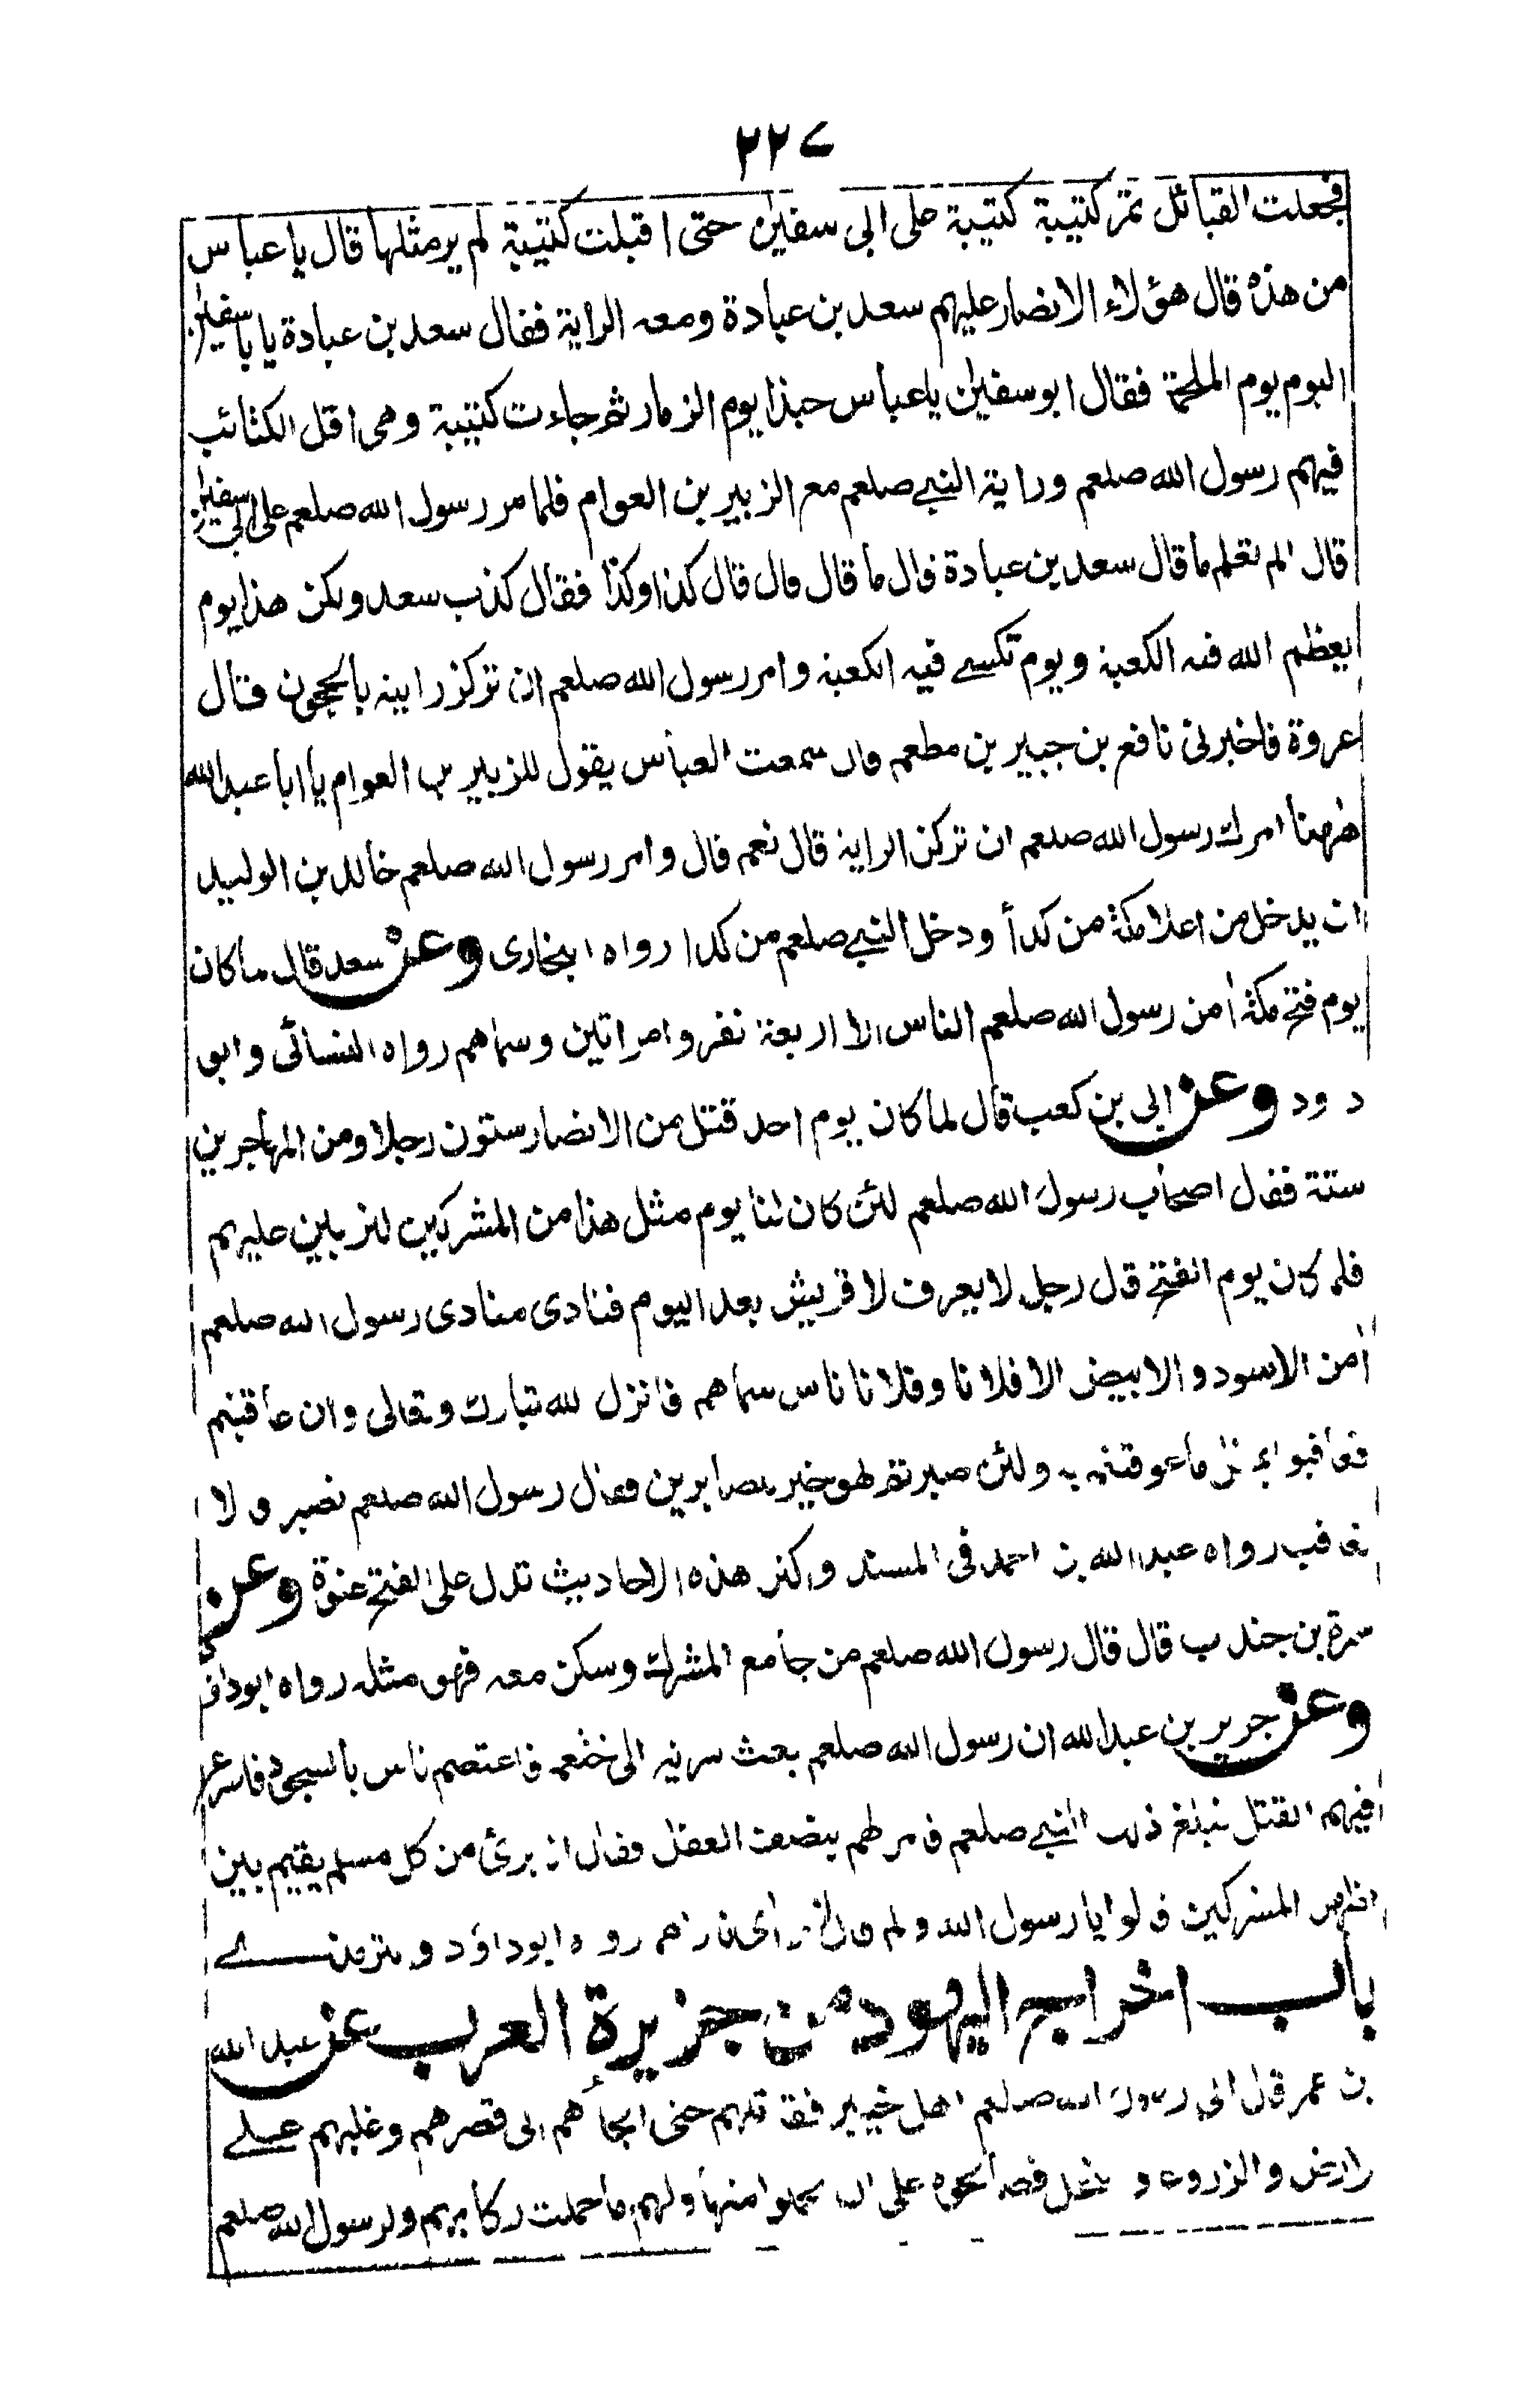 ٢٢٧
فجعلت القبائل تمر كتيبة كتيبة على ابى سفيٰن حتى اقبلت كتيبة لم ير مثلها قال يا عباس
من هذه قال هؤلاء الانصار عليهم سعد بن عبادة ومعه الراية فقال سعد بن عبادة يا با سفيٰن
اليوم يوم الملحمة فقال ابو سفيٰن يا عباس حبذا يوم الزمار ثم جاءت كتيبة وهى اقل الكتائب
فيهم رسول الله صلعم وراية النبي صلعم مع الزبير بن العوام فلما مر رسول الله صلعم على ابى سفيٰن
قال الم تعلم ما قال سعد بن عبادة قال ما قال قال قال كذا وكذا فقال كذب سعد ولكن هذا يوم
يعظم الله فيه الكعبة ويوم تكسے فيه الكعبة وامر رسول الله صلعم ان تركز رايته بالحجون قال
عروة فاخبرنى نافع بن جبير بن مطعم قال سمعت العباس يقول للزبير بن العوام يا ابا عبد الله
ههنا امرك رسول الله صلعم ان تركز الراية قال نعم قال وامر رسول الله صلعم خالد بن الوليد
ان يدخل من اعلا مكة من كدأ ودخل النبي صلعم من كدا رواه البخارى وعن سعد قال ما كان
يوم فتح مكة أمن رسول الله صلعم الناس الا اربعة نفر وامراتين وسماهم رواه النسائى وابو
داود وعن ابى بن كعب قال لما كان يوم احد قتل من الانصار ستون رجلا ومن المهاجرين
ستة فقال اصحاب رسول الله صلعم لئن كان لنا يوم مثل هذا من المشركين لنربين عليهم
فلما كان يوم الفتح قال رجل لا يعرف لا قريش بعد اليوم فنادى منادى رسول الله صلعم
أمن الاسود والابيض الا فلانا وفلانا ناس سماهم فانزل الله تبارك وتعالى وان عاقبتم
فعاقبوا بمثل ما عوقبتم به ولئن صبرتم لهو خير للصابرين فقال رسول الله صلعم نصبر ولا
نعاقب رواه عبد الله بن احمد فى المسند واكثر هذه الاحاديث تدل على الفتح عنوة وعن
سمرة بن جندب قال قال رسول الله صلعم من جامع المشرك وسكن معه فهو مثله رواه ابو داؤد
وعن جرير بن عبد الله ان رسول الله صلعم بعث سرية الى خثعم فاعتصم ناس بالسجود فاسرع
فيهم القتل فبلغ ذلك النبي صلعم فامر لهم بنصف العقل وقال انا برئ من كل مسلم يقيم بين
اظهر المشركين قالوا يا رسول الله ولم قال لا ترائى نارهم رواه ابو داؤد والترمذے
باب اخراج اليهود من جزيرة العرب عن عبد الله
بن عمر قال اتى رسول الله صلعم اهل خيبر فقاتلهم حتى الجأهم الى قصرهم وغلبهم علے
الارض والزرع والنخل فصالحوه على ان يجلوا منها ولهم ما حملت ركابهم ولرسول الله صلعم